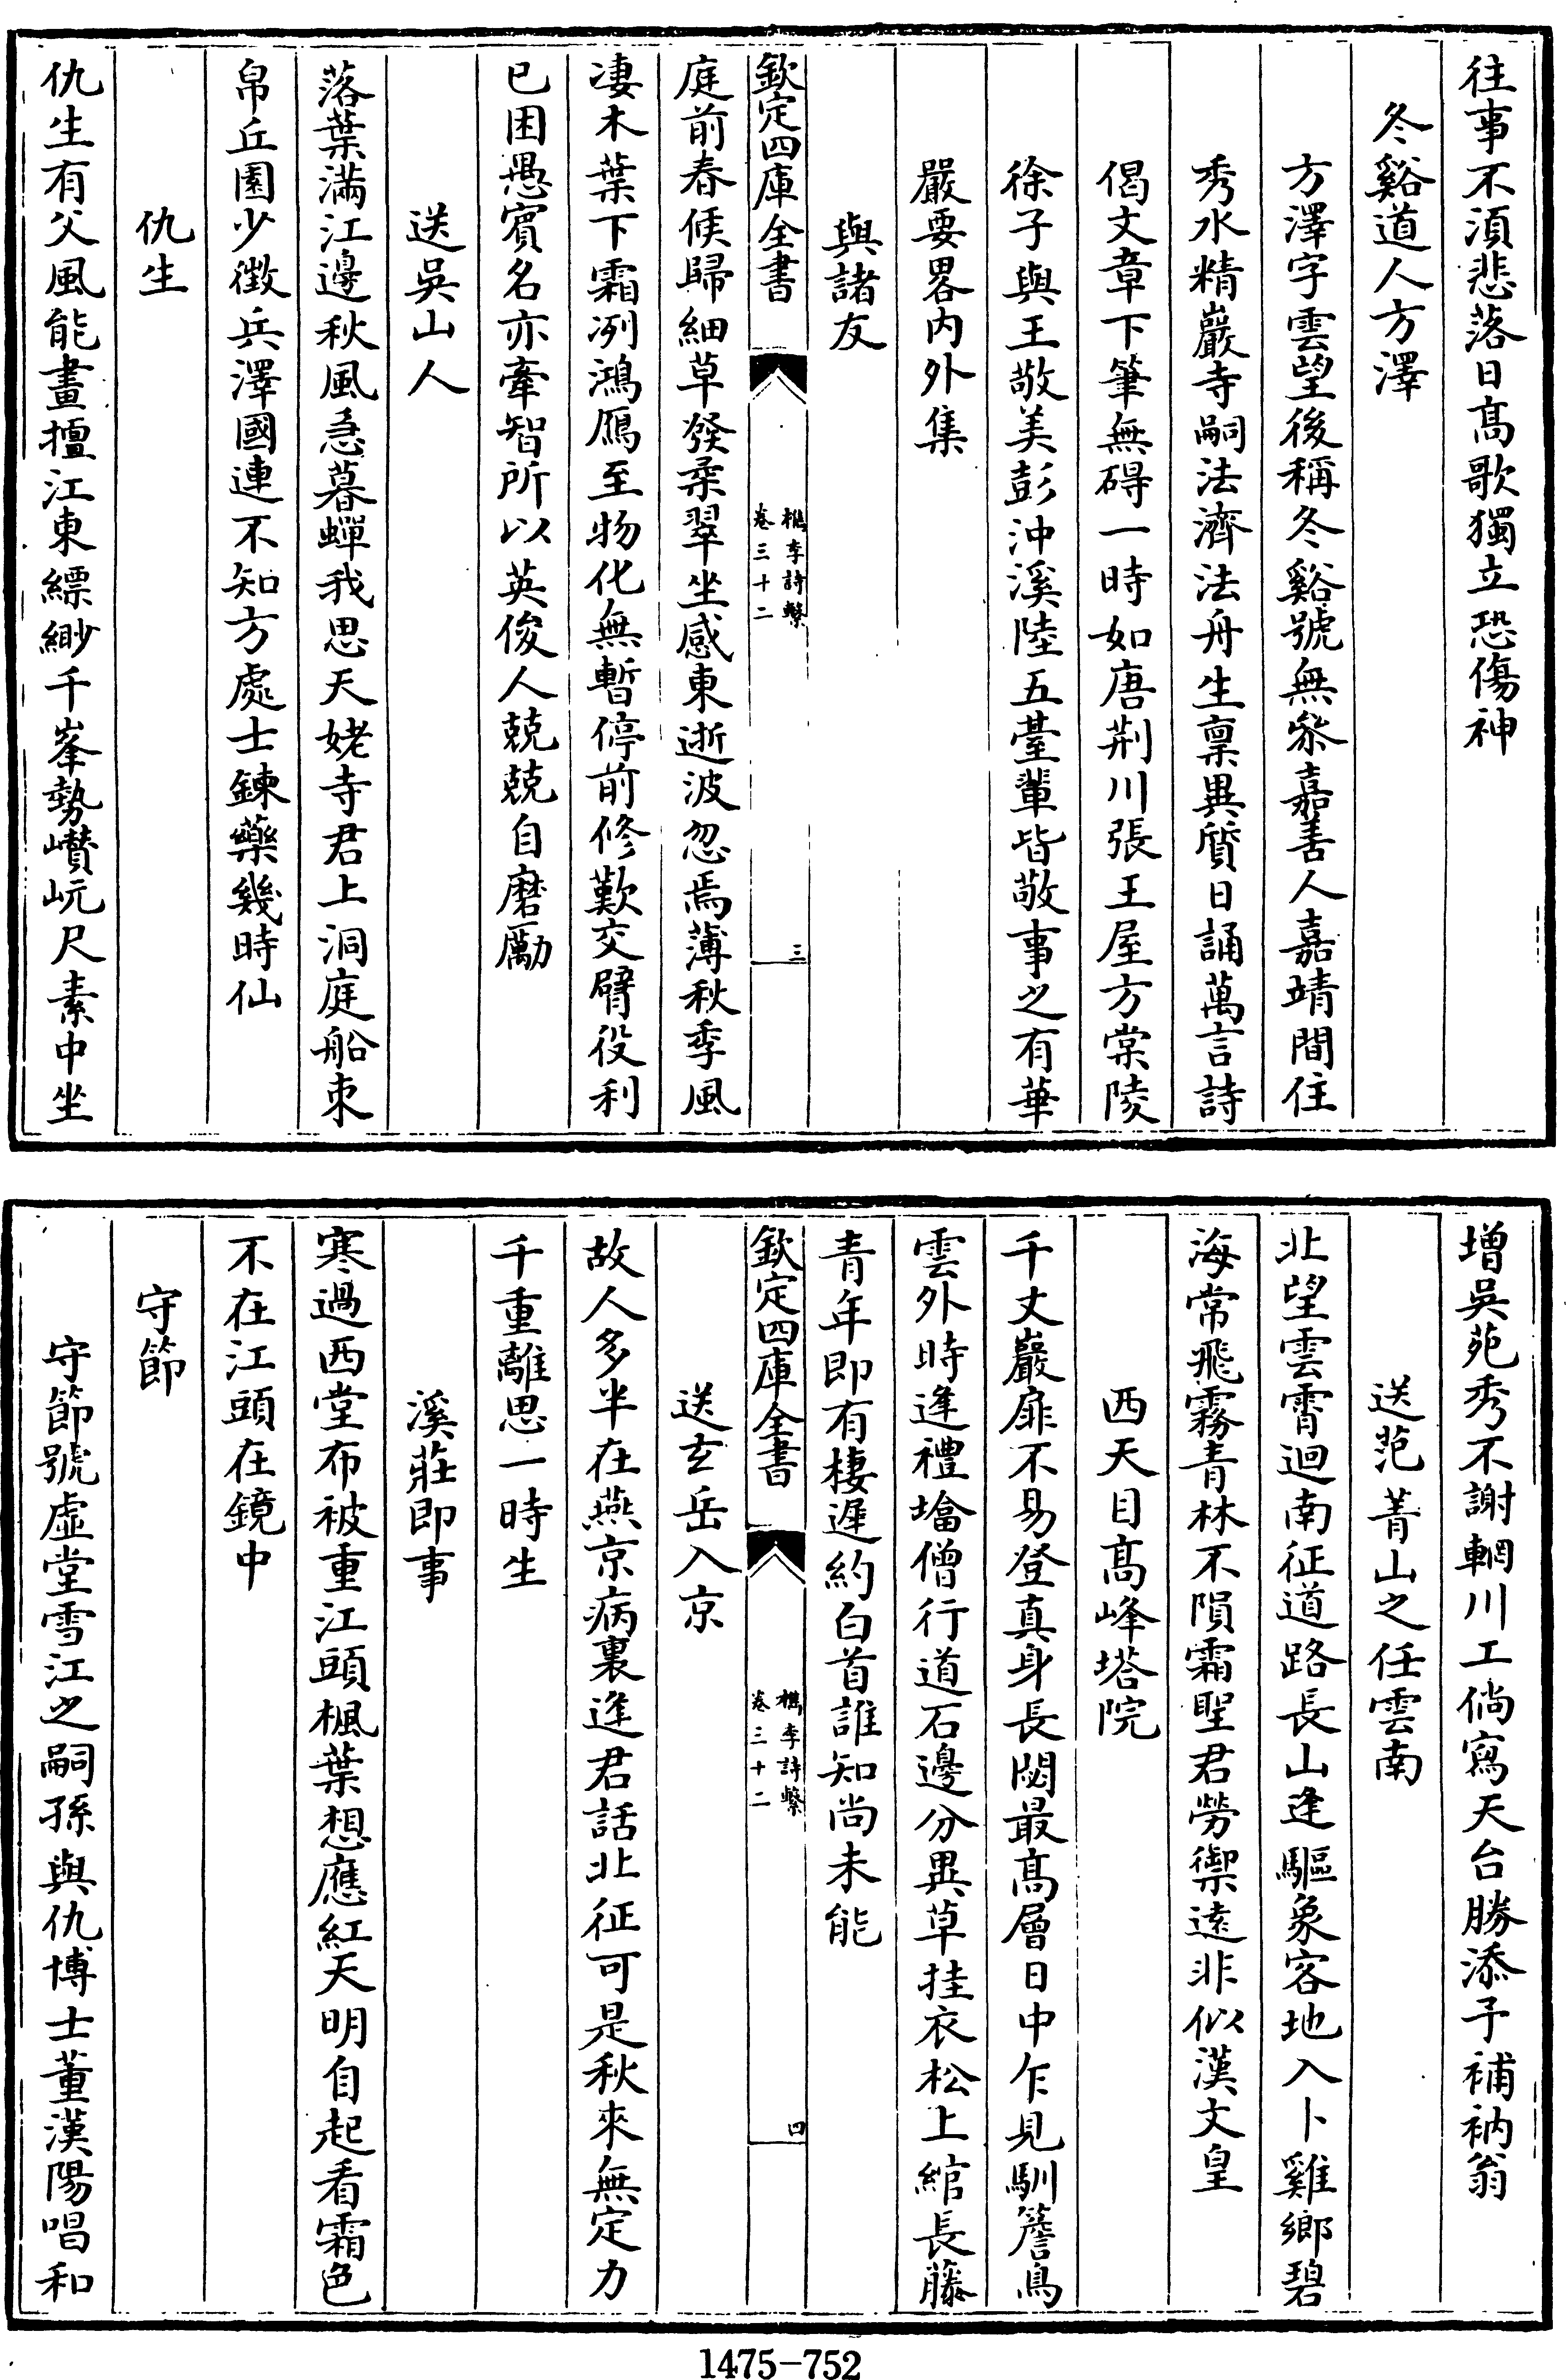 往事不須悲落日髙歌獨立恐傷神
冬谿道人方澤
方澤字雲望後稱冬谿號無叅嘉善人嘉靖間住
秀水精巖寺嗣法濟法舟生禀異質日誦萬言詩
偈文章下筆無碍一時如唐荆川張王屋方棠陵
徐子與王敬美彭沖溪陸五臺輩皆敬事之有華
嚴要畧内外集
與諸友
欽定四庫全書
檇李詩繫
卷三十二
三
庭前春候歸細草發柔翠坐感東逝波忽焉薄秋季風
凄木葉下霜冽鴻鴈至物化無暫停前修歎交臂役利
已困愚賓名亦牽智所以英俊人兢兢自磨勵
送吳山人
落葉滿江邊秋風急暮蟬我思天姥寺君上洞庭船朿
帛丘園少徵兵澤國連不知方處士鍊藥幾時仙
仇生
仇生有父風能畫擅江東縹緲千峯勢巑岏尺素中坐
增吳苑秀不謝輞川工倘寫天台勝添予補衲翁
送范菁山之任雲南
北望雲霄迥南征道路長山逢驅象客地入卜雞鄉碧
海常飛霧青林不隕霜聖君勞禦遠非似漢文皇
西天目髙峰塔院
千丈巖扉不易登真身長閟最髙層日中乍見馴簷鳥
雲外時逢禮墖僧行道石邊分異草挂衣松上綰長藤
青年即有棲遲約白首誰知尚未能
欽定四庫全書
檇李詩繫
卷三十二
四
送玄岳入京
故人多半在燕京病裏逢君話北征可是秋來無定力
千重離思一時生
溪莊即事
寒過西堂布被重江頭楓葉想應紅天明自起看霜色
不在江頭在鏡中
守節
守節號虛堂雪江之嗣孫與仇博士董漢陽唱和
1475-752